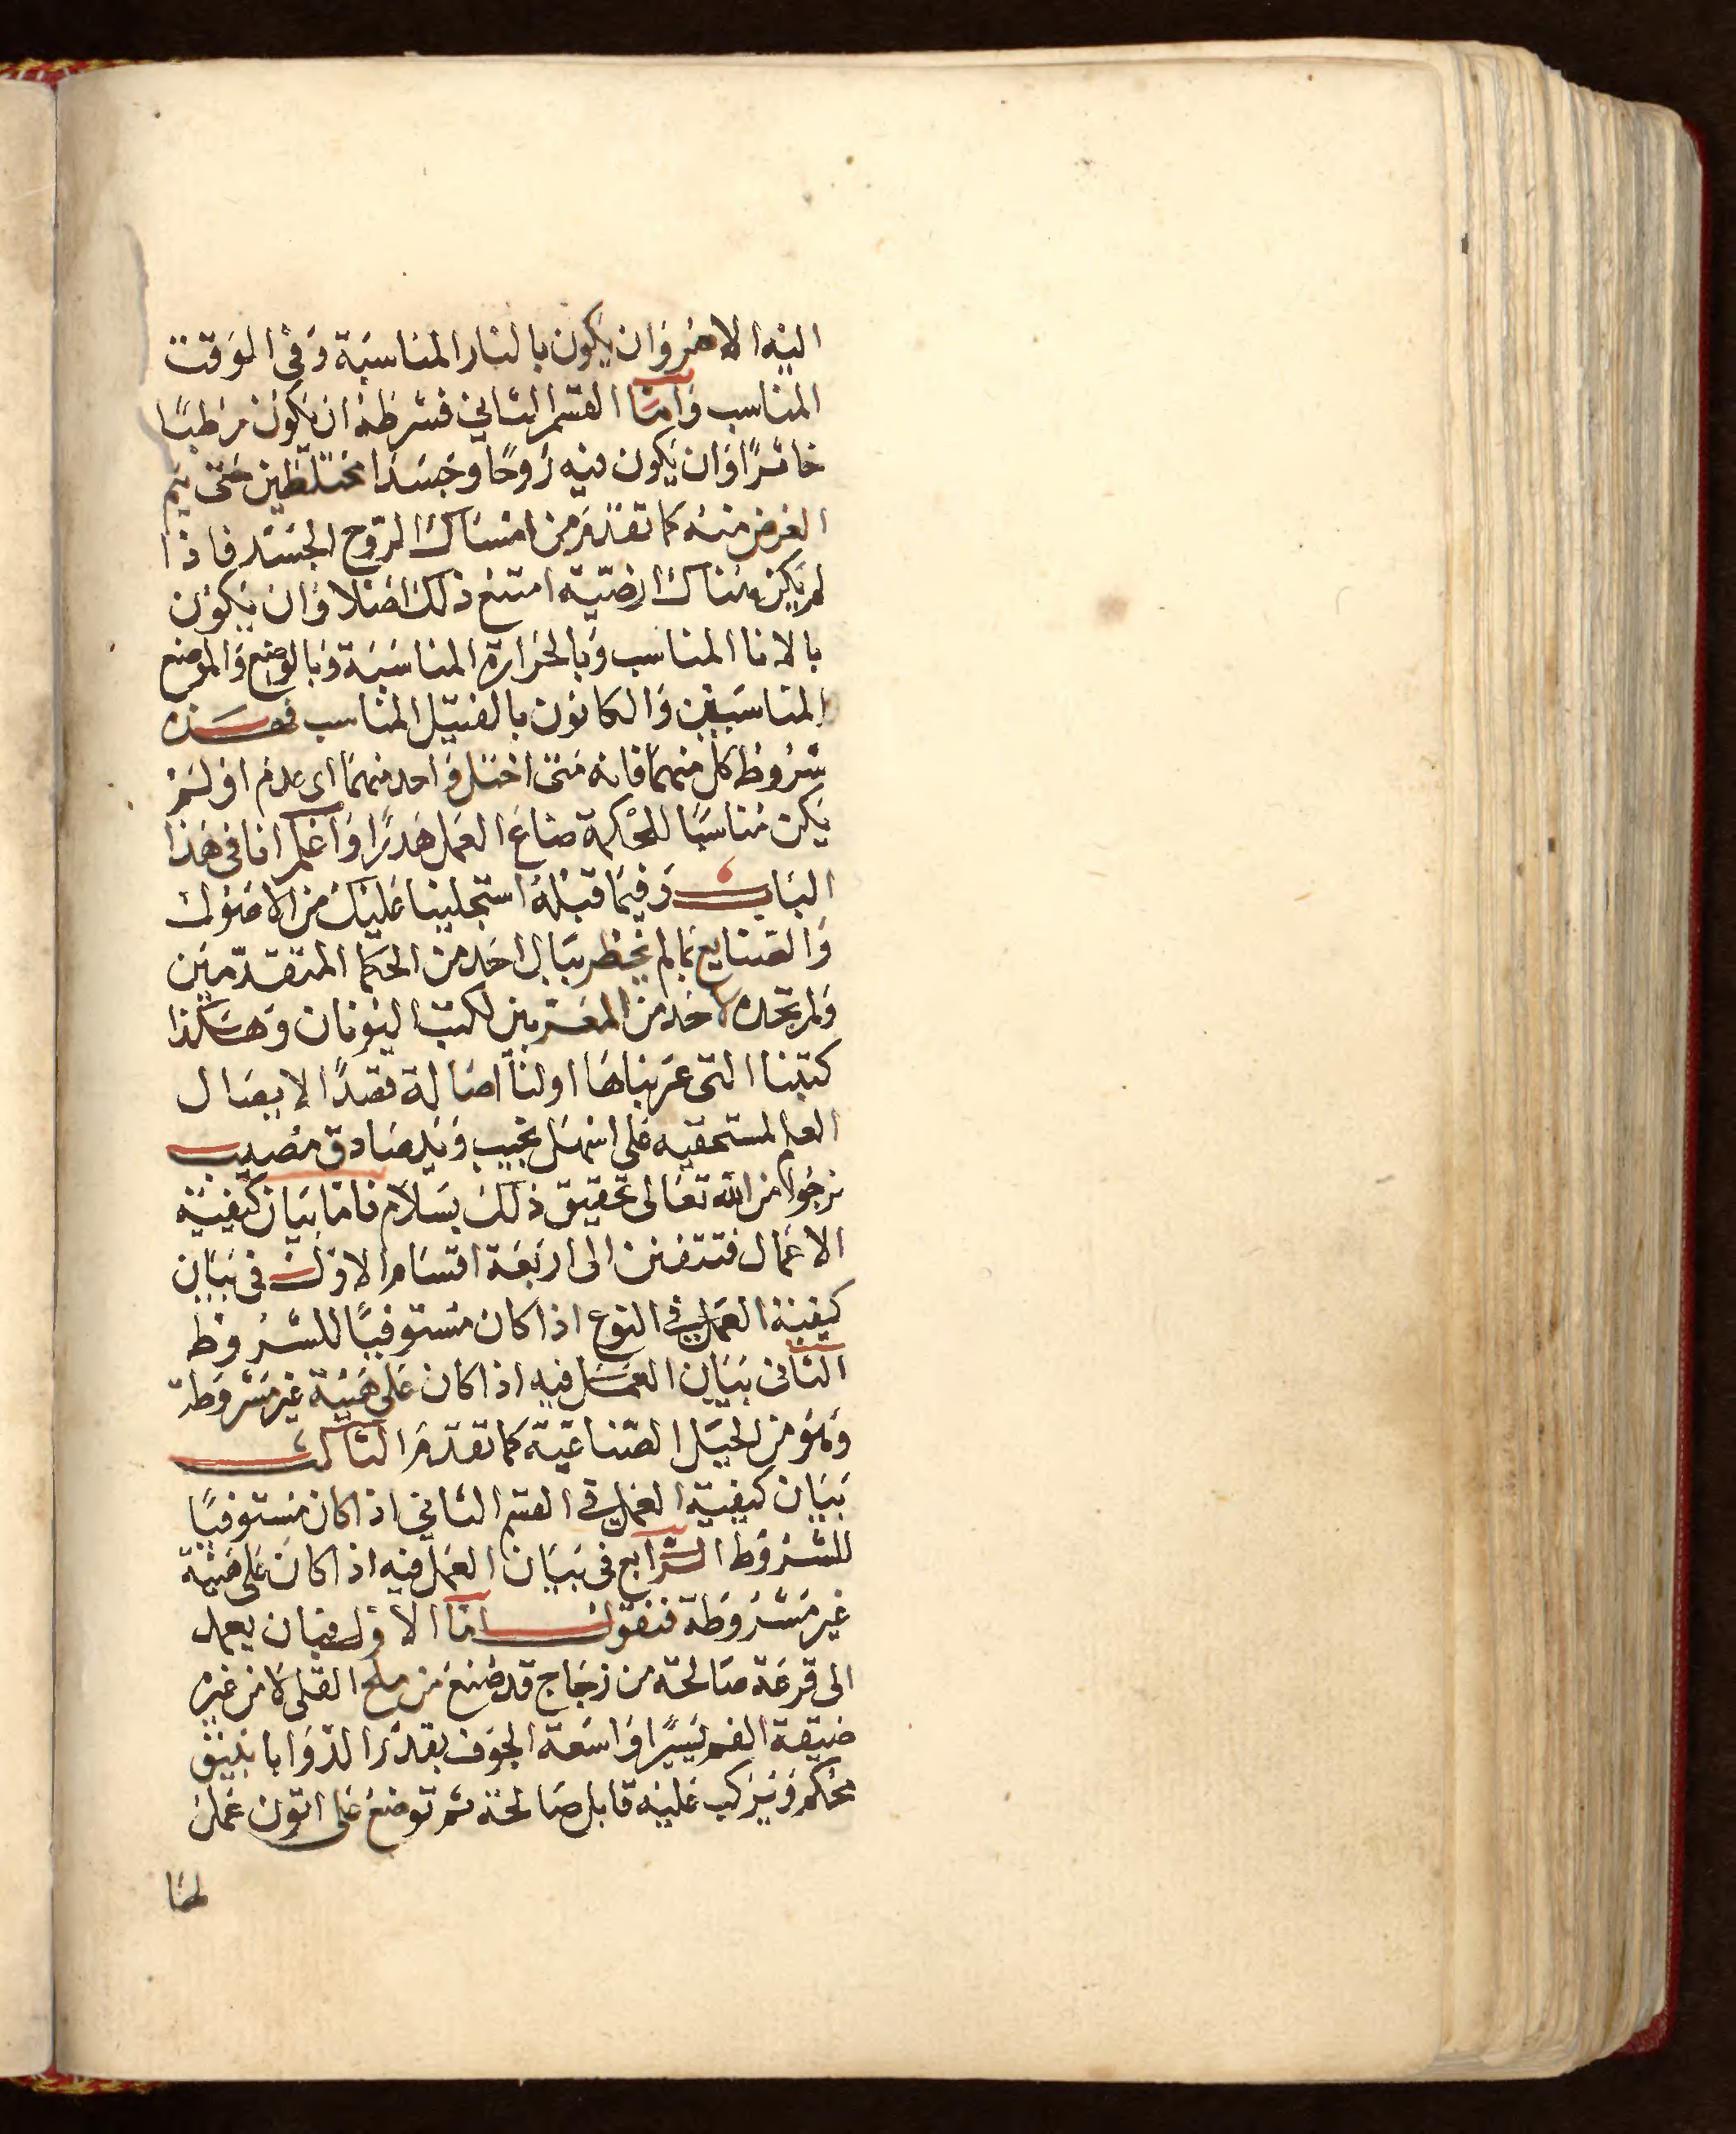 اليه الامر وان يكون بالنار المناسبة وفى الوقت
المناسب واما القسم الثانى فشرطه ان يكون رطبًا
خاثرًا وان يكون فيه روحًا وجسدًا مختلطين حتى يتم
الغرض منه كما تقدم من امساك الروح الجسد فاذا
لم يكن هناك ارضية امتنع ذلك اصلا وان يكون
بالانا المناسب وبالحرارة المناسبة وبالوضع والموضع
المناسبين والكانون بالفتيل المناسب فهذه
شروط كل منهما فانه متى اختل واحد منهما اى عدم او لم
يكن مناسبًا للحكمة ضاع العمل هدرًا واعلم انا فى هذا
الباب وفيما قبله استجلينا عليك من الاصول
والصنايع بما لم يخطر ببال احد من الحكما المتقدمين
ولم تجده لاحد من المعربين لكتب اليونان وهكذا
كتبنا التى عربناها اولنا اصالة قصدًا لايصال
العلم لمستحقيه على اسهل مجيب ويد صادق مصيب
نرجوا من الله تعالى تحقيق ذلك بسلام فاما بيان كيفية
الاعمال فتتفنن الى اربعة اقسام الاول فى بيان
كيفية العمل فى النوع اذا كان مستوفيًا للشروط
الثانى بيان العمل فيه اذا كان على هيئة غير مشروطة
وهو من الحيل الصناعية كما تقدم الثالث
بيان كيفية العمل فى القسم الثانى اذا كان مستوفيًا
للشروط الرابع فى بيان العمل فيه اذا كان على هيئة
غير مشروطة فنقول اما الاول فبان يعمد
الى قرعة صالحة من زجاج قد صنع من ملح القلى لا من غيره
ضيقة الفم يسيرًا واسعة الجوف بقدر الدوا بانبيق
محكم ويركب عليه قابل صالحة ثم توضع على اتون عمل
لهنا